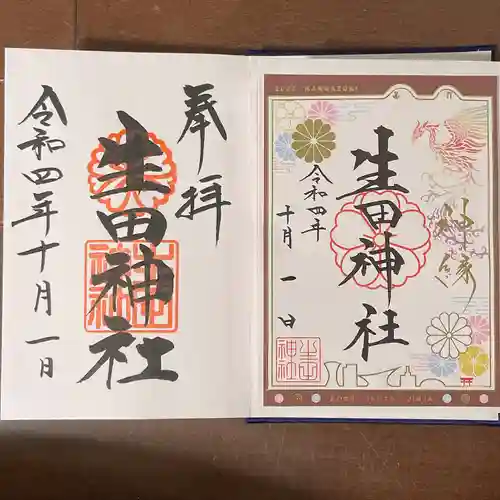 奉拝
生田神社
令和四年十月一日
2022 KANNAZUKI
生田神社
令和四年
十月一日
生田
神社
KOBE IKUTA JINJA